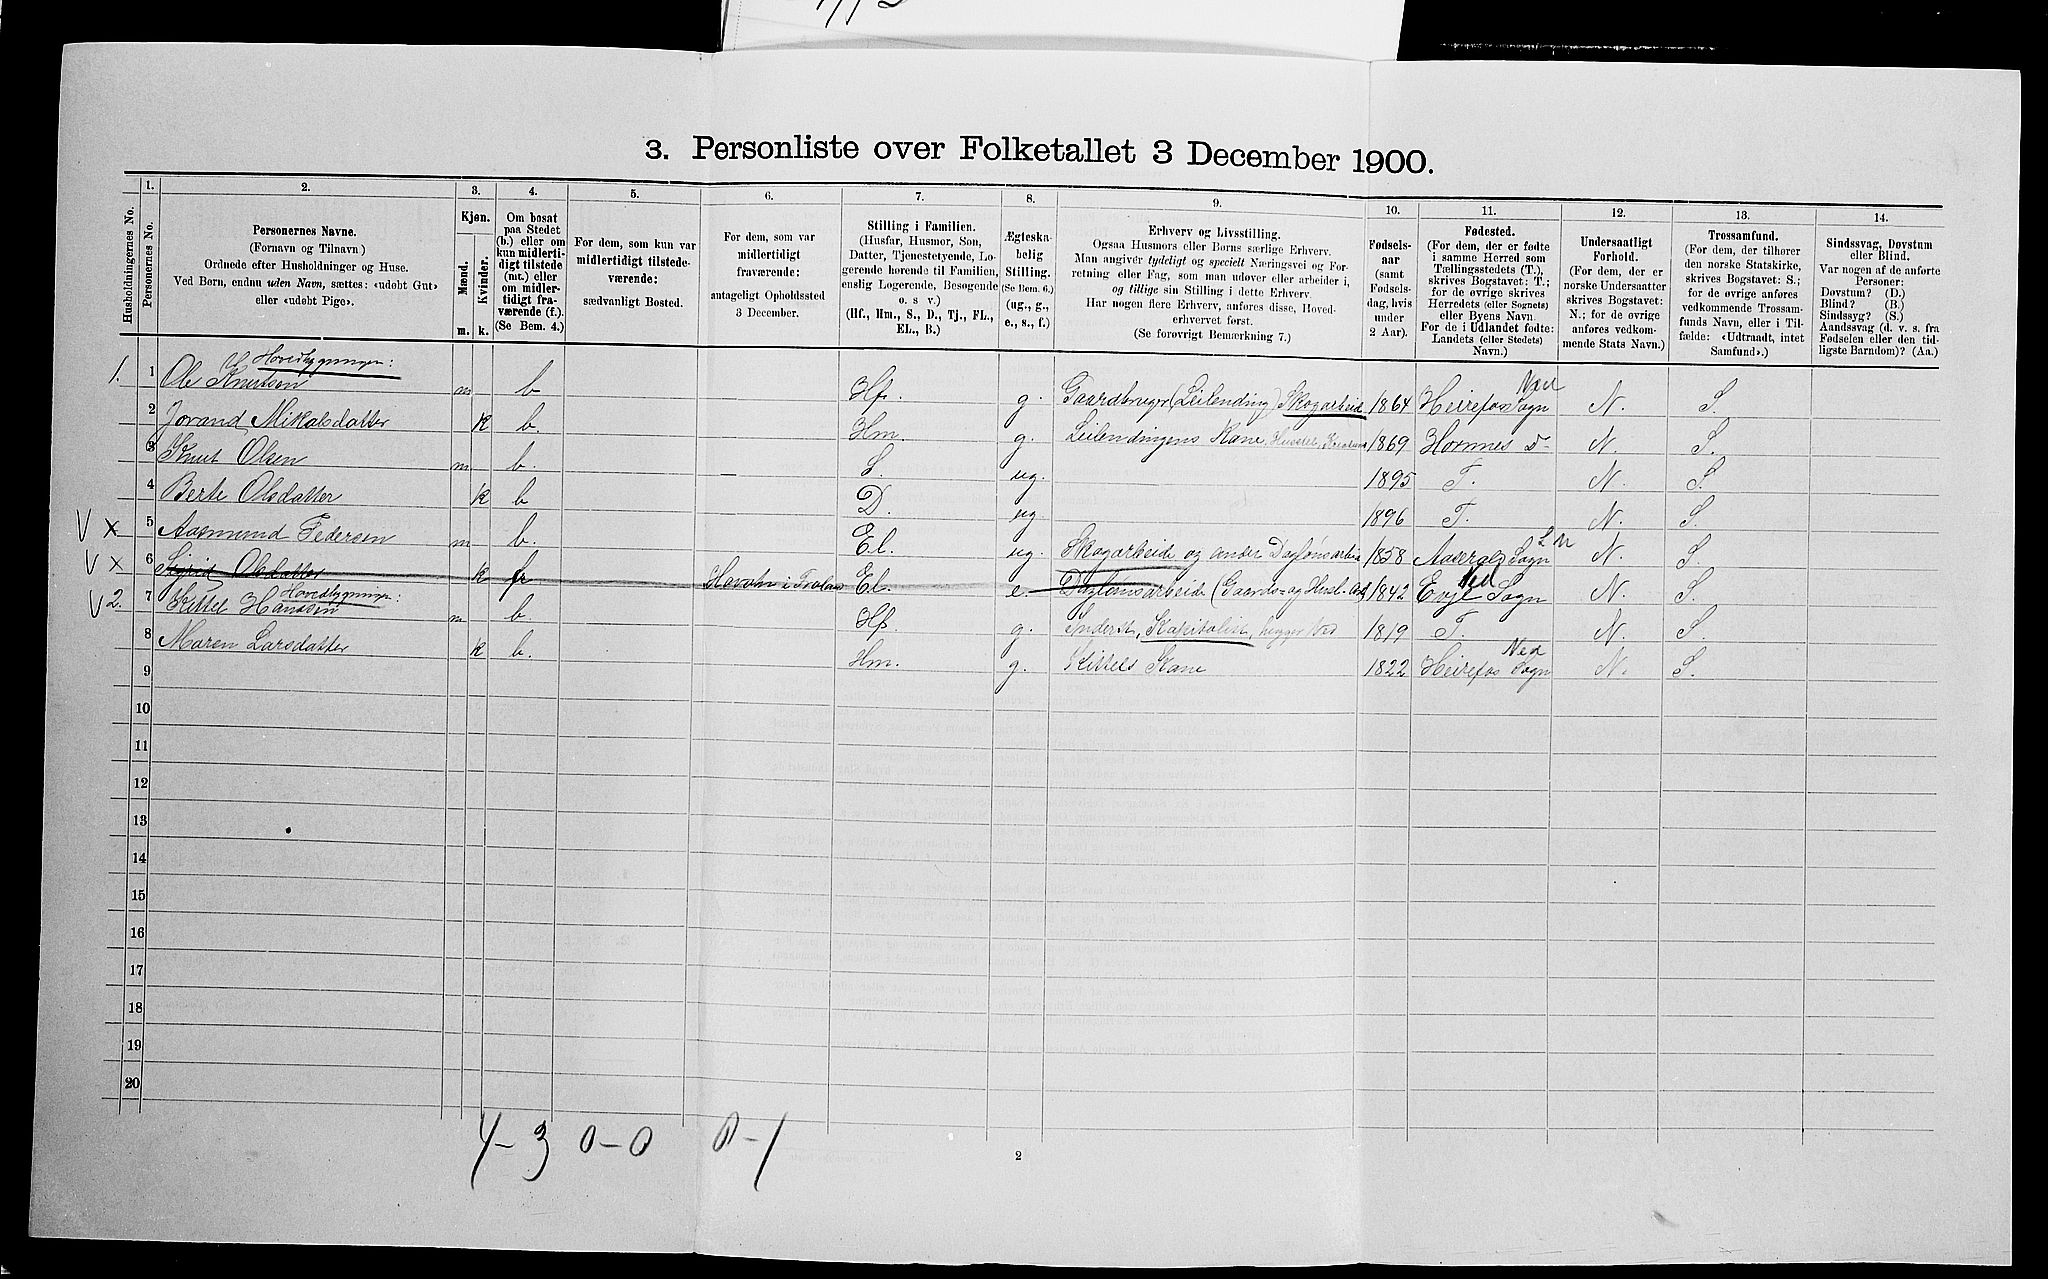 3. Personliste over Folketallet 3 December 1900.
Husholdningernes No.
1.
Personernes No.
2.
Personernes Navne.
(Fornavn og Tilnavn)
Ordnede efter Husholdninger og Huse.
Ved Børn, endnu uden Navn, sættes: «udøbt Gut»
eller «udøbt Pige».
3.
Kjøn.
Mænd.
Kvinder.
m. k.
4.
Om bosat
paa Stedet
(b.) eller om
kun midlerti-
digt tilstede
(mt.) eller
om midler-
tidigt fra-
værende (f.).
(Se Bem. 4.)
5.
For dem, som kun var
midlertidigt tilstede-
værende:
sædvanligt Bosted.
6.
For dem, som var
midlertidigt
fraværende:
antageligt Opholdssted
3 December.
7.
Stilling i Familien.
(Husfar, Husmor, Søn,
Datter, Tjenestetyende, Lo-
gerende hørende til Familien,
enslig Logerende, Besøgende
o. s v.)
(Hf., Hm., S., D., Tj., FL.,
EL., B.)
8.
Ægteska-
belig
Stilling.
(Se Bem. 6.)
(ug., g.,
e., s., f.)
9.
Erhverv og Livsstilling.
Ogsaa Husmors eller Børns særlige Erhverv.
Man angiver tydeligt og specielt Næringsvei og For-
retning eller Fag, som man udøver eller arbeider i,
og tillige sin Stilling i dette Erhverv.
Har nogen flere Erhverv, anføres disse, Hoved-
erhvervet først.
(Se forøvrigt Bemærkning 7.)
10.
Fødsels-
aar
(samt
Fødsels-
dag, hvis
under
2 Aar).
11.
Fødested.
(For dem, der er fødte
i samme Herred som
Tællingsstedets (T.),
skrives Bogstavet: T.;
for de øvrige skrives
Herredets (eller Sognets)
eller Byens Navn.
For de i Udlandet fødte:
Landets (eller Stedets)
Navn.)
12.
Undersaatligt
Forhold.
(For dem, der er
norske Undersaatter
skrives Bogstavet:
N.; for de øvrige
anføres vedkom-
mende Stats Navn.)
13.
Trossamfund.
(For dem, der tilhører
den norske Statskirke,
skrives Bogstavet: S.;
for de øvrige anføres
vedkommende Trossam-
funds Navn, eller i Til-
fælde: «Udtraadt, intet
Samfund».)
14.
Sindssvag, Døvstum
eller Blind.
Var nogen af de anførte
Personer:
Døvstum? (D.)
Blind? (B.)
Sindssyg? (S.)
Aandssvag (d. v. s. fra
Fødselen eller den tid-
ligste Barndom)? (Aa.)
Hovedbygningen:
1. 1 Ole Knutson m b Hf. g. Gaardbruger (Leilending) Skogarbeid 1864 Heirefos Sogn N. S.
2 Jorand Mikalsdatter k b. Hm. g. Leilendingens Kone, Husstel, 1869 Hornnes N. S.
3 Knut Olsen m b. S. ug. 1895 T. N. S.
4 Berte Olsdatter k b D. ug 1896 T. N. S.
V x 5 Aasmund Pedersen m b. El. ug. Skogarbeide og andet 1858 Aaseral Sogn N. S.
V x 6 Sigrid Olsdatter k fr i El. e Dagløнsarbeide (Gaards- og Husl. 1842 Evje Sogn N. S.
Hovedbygningen:
V 2. 7 Kittel Hanssen m b. Hf. g. Kapitalist, hugger Ved 1819 T. N. S.
8 Maren Larsdatter k b. Hm. g. Kittels Kone 1822 Heirefos Sogn N. S.
Ned
9
10
11
12
13
14
15
16
17
18
19
20
4-3 0-0 0-1
2